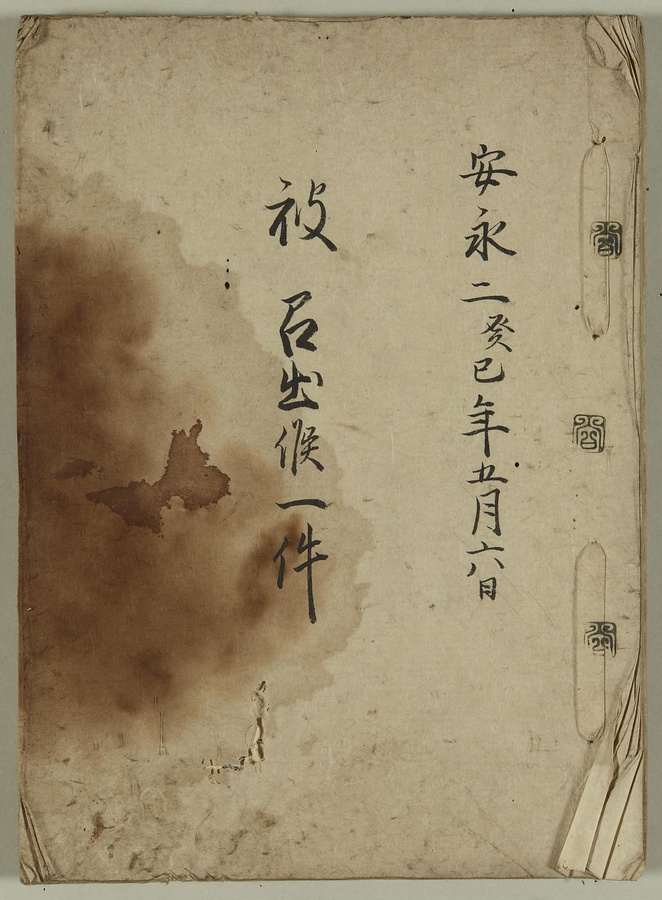 安永二癸巳年五月六日
被 召出候一件